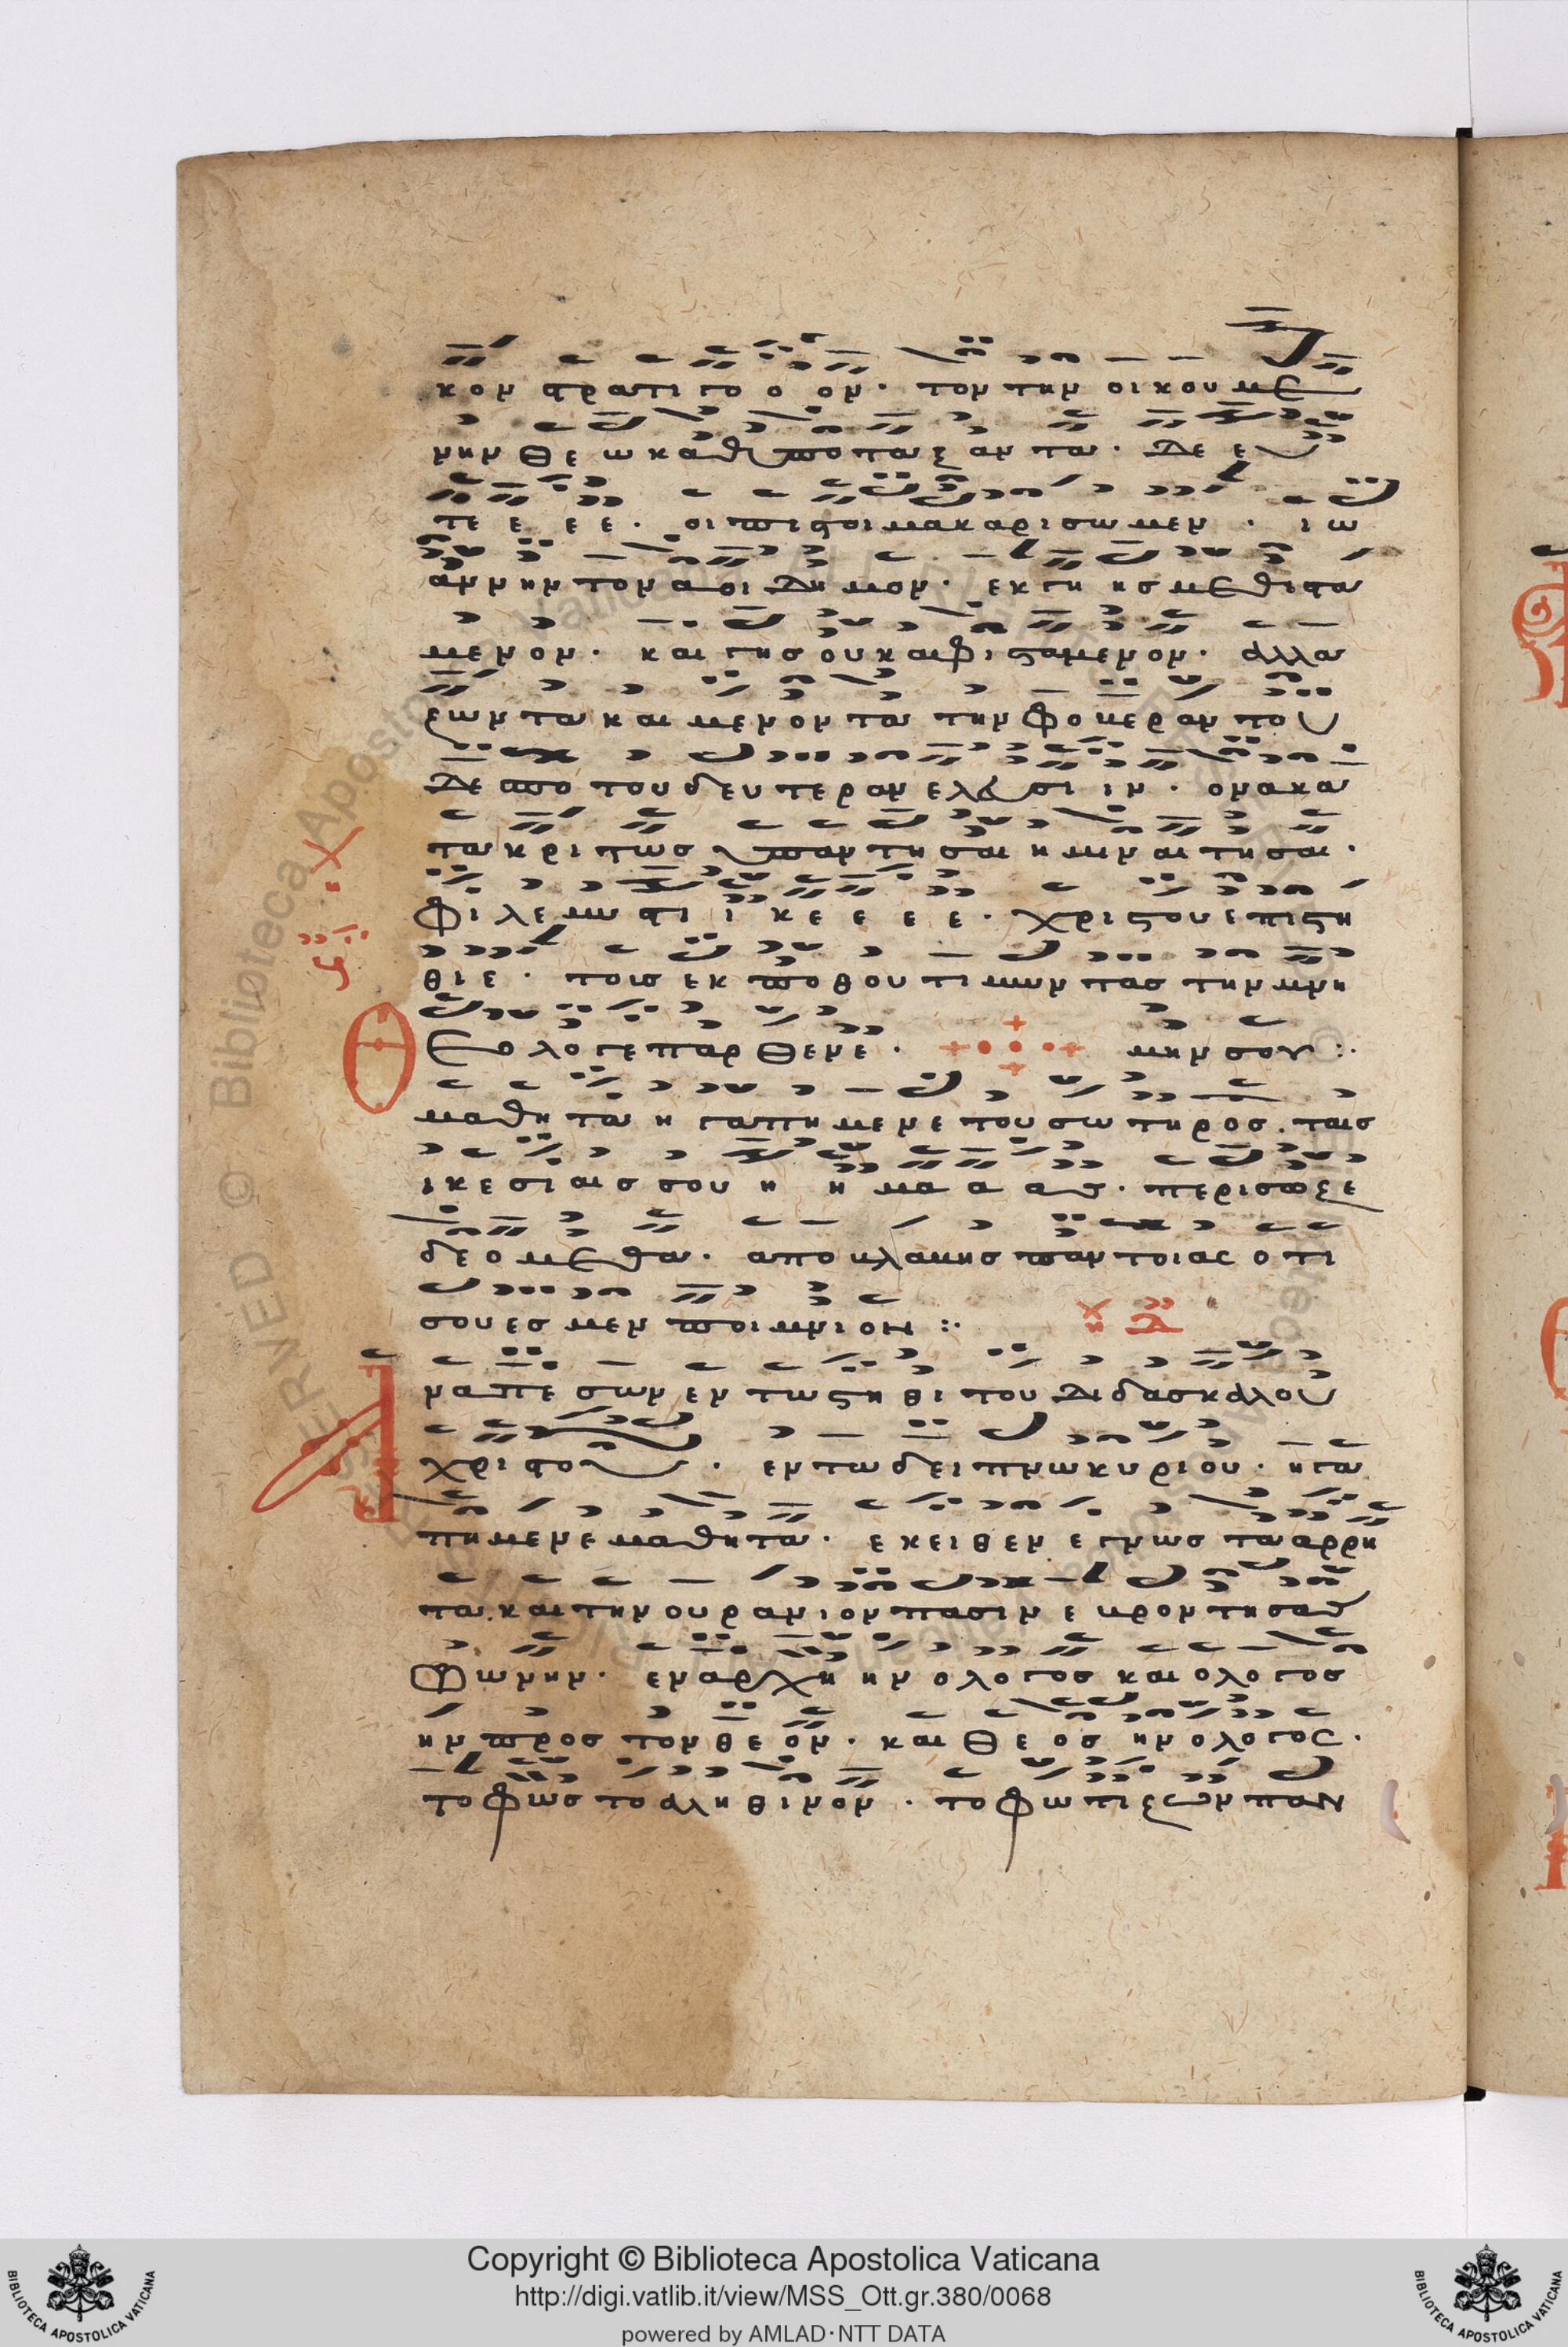 κον στρατι γο ο ον · τον την οικουμε
νην Θεω καθυποταξαντα · Δε ευ
τε ε ε ε · οι πιστοι μακαρισωμεν · Ιω
αννην τον αοιδημον · εκ γη ησ μεθιστα
μενον · και γησ ουκ αφισταμενον · αλλα
ζωντα και μενοντα την φοβεραν του
Δεσποτου δευτεραν ελευσι ιν · ον ακα
τακριτωσ υπαντησαι ημιν αιτησαι ·
φιλε μυστι ι κε ε ε ε · χριστου επιστη
θιε · τοισ εκ ποθου τιμων τασ την μνη
εολογε παρθενε · μην σου :·
Θ
μαθητα ηγαπημενε του σωτηροσ · ταισ
ικεσιαισ σου η ημα α ασ · περισωζε
δεομεθα · απο βλαβησ παντοιασ οτι
σου εσμεν ποιμνιον :·
ναπεσων εν τω στηθι του Διδασκαλου
Α
χριστου · εν τω δειπνω κυριου · ηγα
πημενε μαθητα · εκειθεν εγνωσ τα αρρη
τα · και την ουρανιον πασιν εβροντησασ
φωνην · εν αρχη ην ο λογοσ και ο λογοσ
ην προσ τον θεον · και Θεοσ ην ο λογοσ ·
το φωσ το αληθινον · το φωτιζων παν
Copyright © Biblioteca Apostolica Vaticana
http://digi.vatlib.it/view/MSS_Ott.gr.380/0068
powered by AMLAD·NTT DATA
BIBLIOTECA APOSTOLICA VATICANA
BIBLIOTECA APOSTOLICA VATICANA